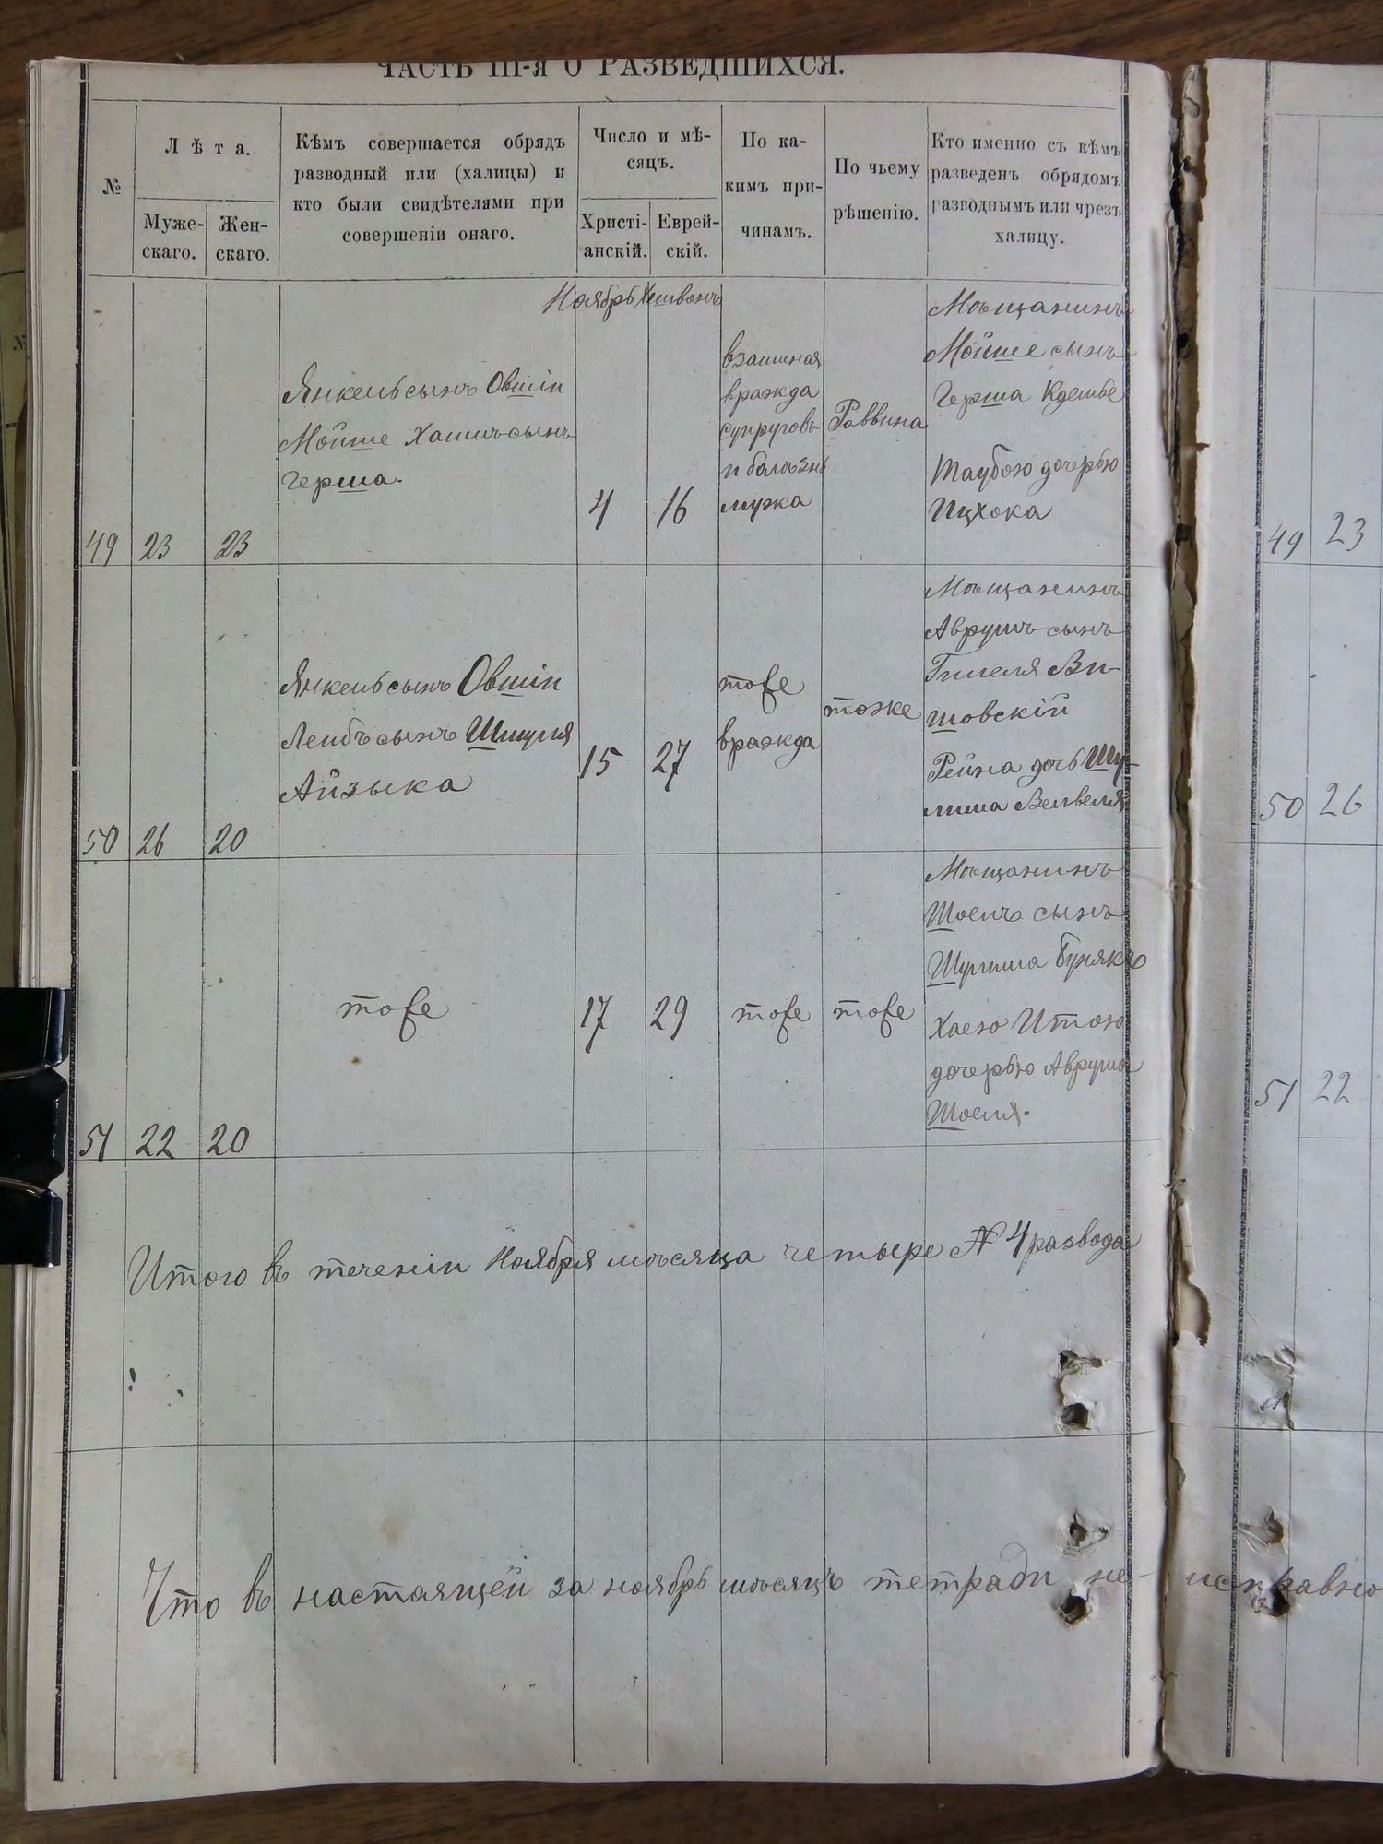 ЧАСТЬ III-я О РАЗВЕДШИХСЯ.
№
Лѣта.
Муже-
скаго.
Жен-
скаго.
Кѣмъ совершается обрядъ
разводный или (халицы) и
кто были свидѣтелями при
совершеніи онаго.
Число и мѣ-
сяцъ.
Христі-
анскій.
Еврей-
скій.
По ка-
кимъ при-
чинамъ.
По чьему
рѣшенію.
Кто именно съ кѣмъ
разведенъ обрядомъ
разводнымъ или чрезъ
халицу.
Ноябрь Хешвонъ
49
23
23
Янкель сынъ Овшіи
Мойше Хаимъ сынъ
Герша.
4
16
взаимная
вражда
супруговъ
и болѣзнь
мужа
Раввина
Мѣщанинъ
Мойше сынъ
Герша
Таубою дочерью
Ицхока
50
26
20
Янкель сынъ Овшіи
Лейбъ сынъ Шмуля
Айзыка
15
27
тоже
вражда
тоже
Мѣщанинъ
Аврумъ сынъ
Гилеля Ви-
шовскій
Рейза дочь Шу-
лима Велвеля
51
22
20
тоже
17
29
тоже
тоже
Мѣщанинъ
Шоелъ сынъ
Шулима Буняка
Хаею Итою
дочерью Аврума
Шоеля.
Итого въ теченіи Ноября мѣсяца четыре № 4 развода
Что въ настоящей за ноябрь мѣсяцъ тетради не- исправно
49
23
50
26
51
22